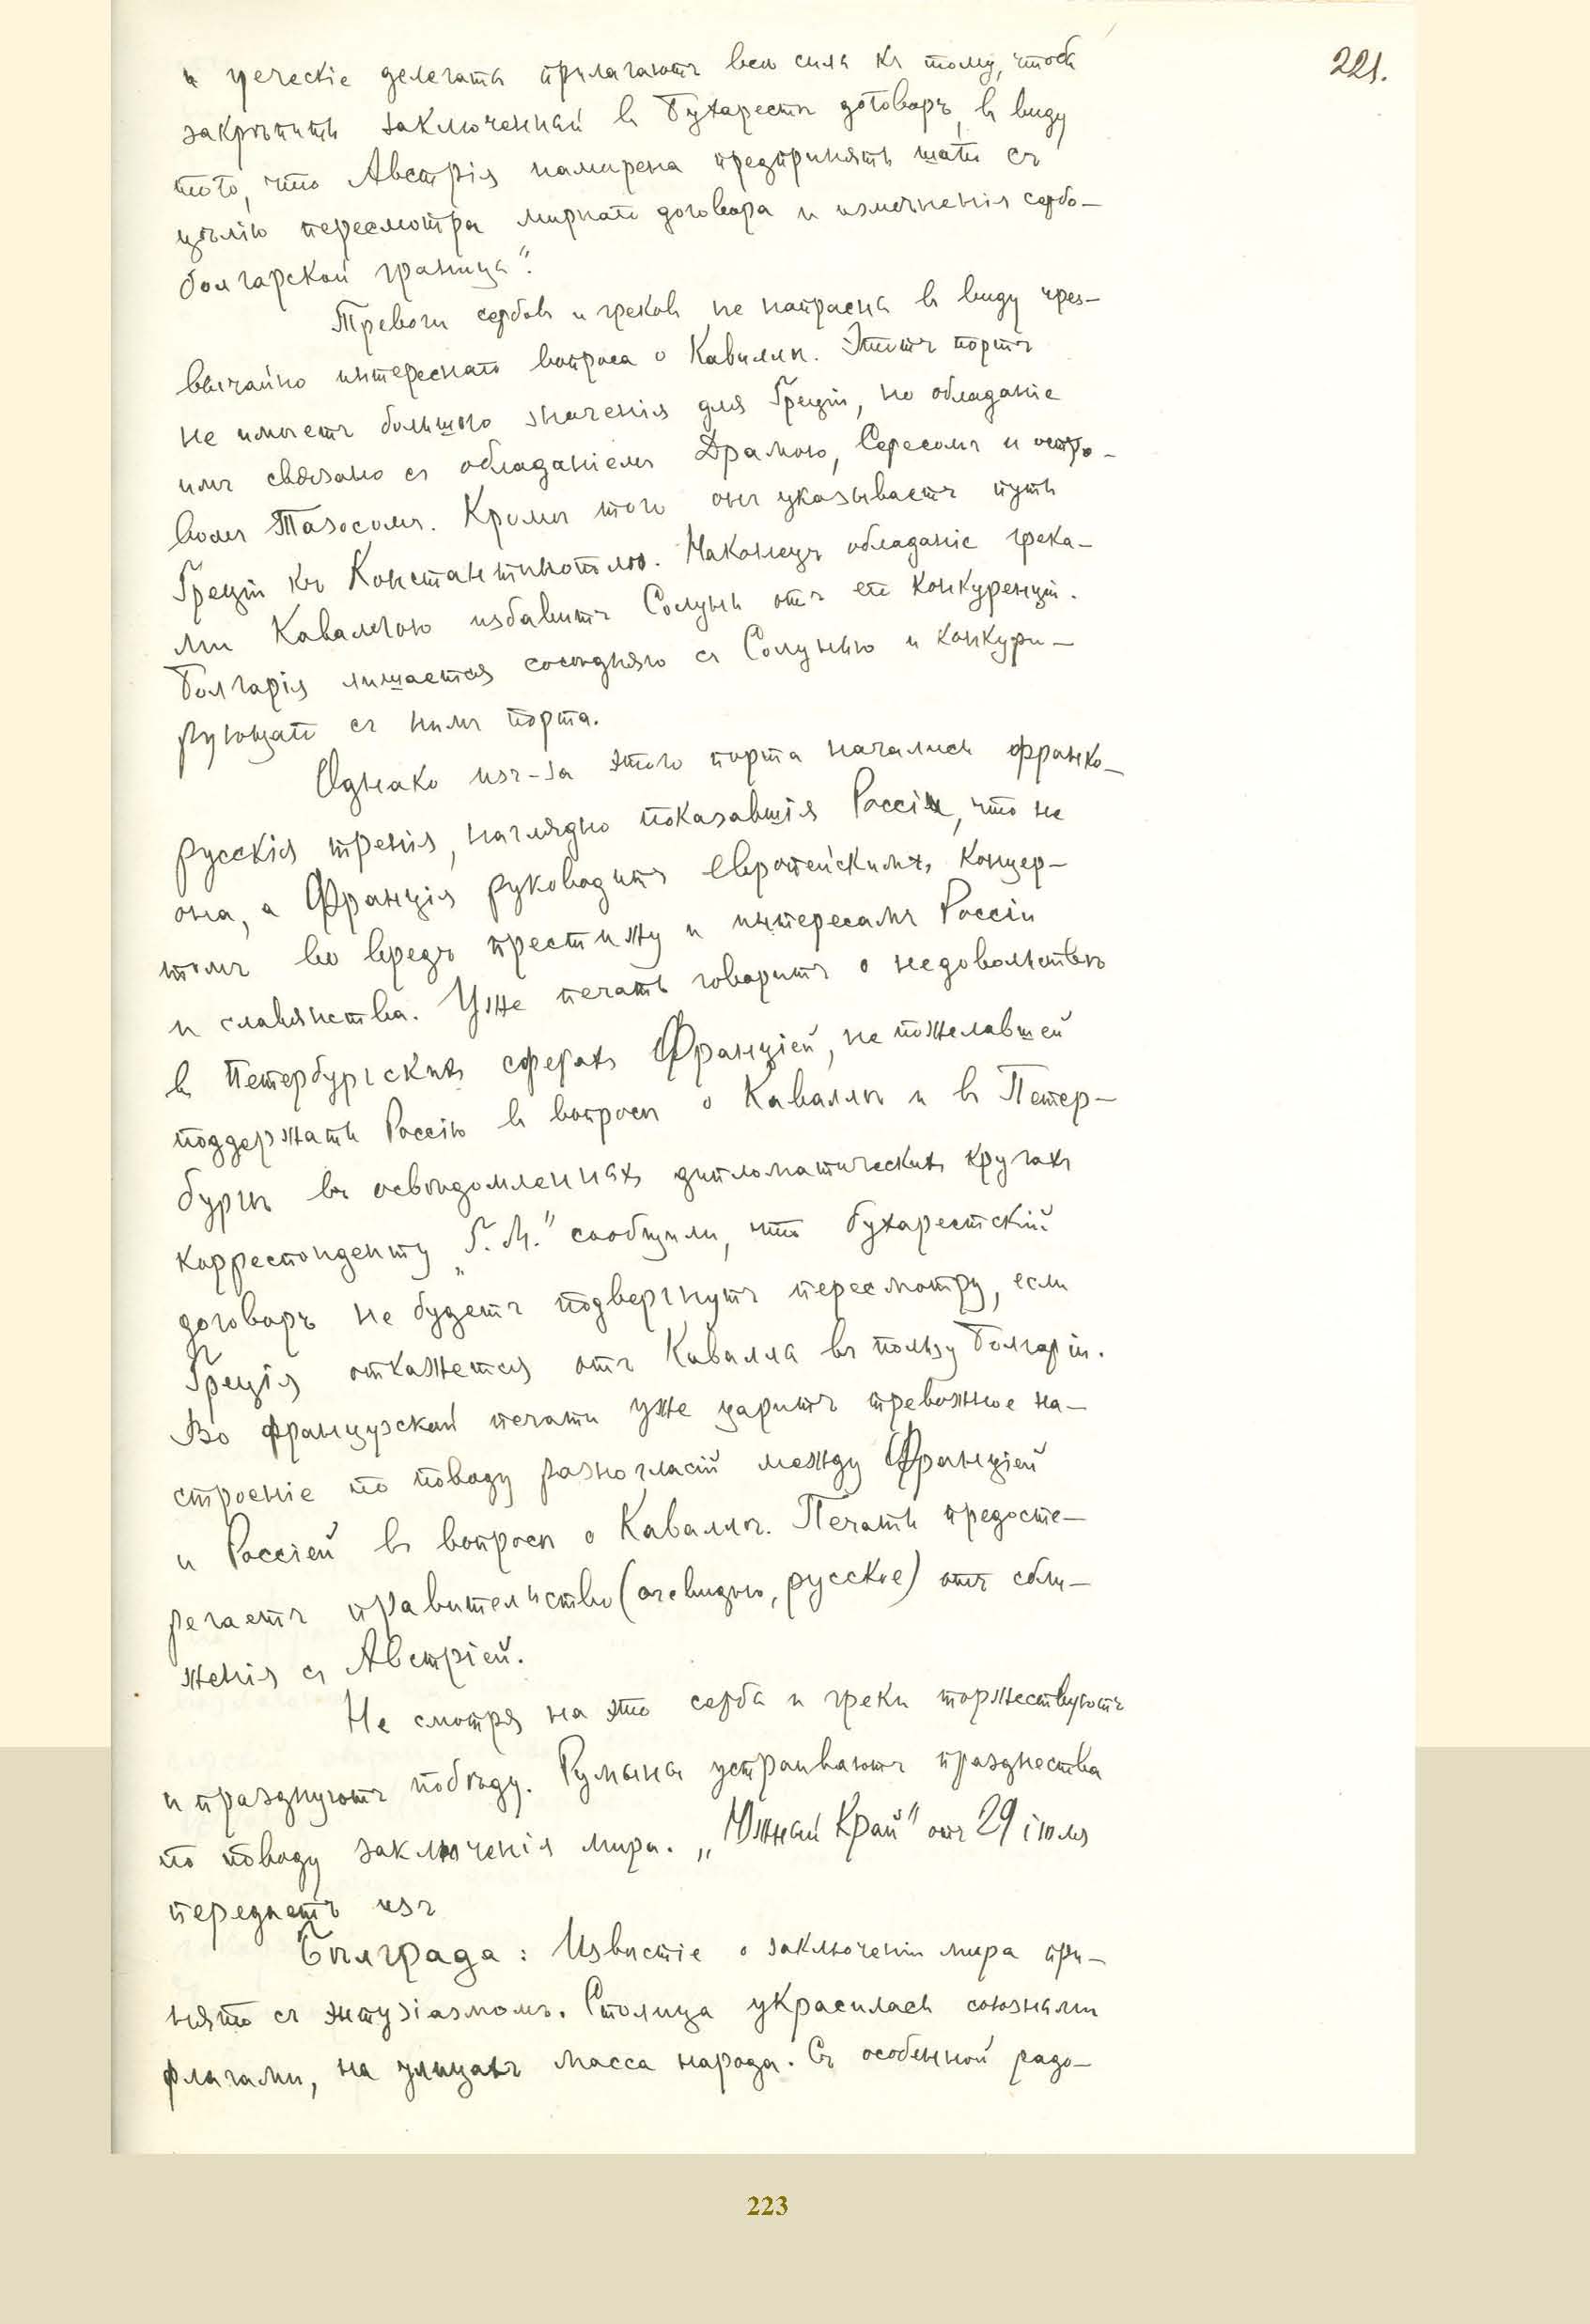 221.
и греческіе делегаты прилагаютъ всѣ силы къ тому, чтобы
закрѣпить заключенный въ Бухарестѣ договоръ, въ виду
того, что Австрія намѣрена предпринять шаги съ
цѣлію пересмотра мирнаго договора и измѣненія сербо-
болгарской границы".
Тревоги сербовъ и грековъ не напрасны въ виду чрез-
вычайно интереснаго вопроса о Каваллѣ. Этотъ портъ
не имѣетъ большого значенія для Греціи, но обладаніе
имъ связано съ обладаніемъ Драмою, Сересомъ и остро-
вомъ Тазосомъ. Кромѣ того онъ указываетъ путь
Греціи къ Константинополю. Наконецъ обладаніе грека-
ми Каваллою избавитъ Солунь отъ ея конкуренціи.
Болгарія лишается сосѣдняго съ Солунью и конкури-
рующаго съ нимъ порта.
Однако изъ-за этого порта начались франко-
русскія тренія, наглядно показавшія Россіи, что не
она, а Франція руководитъ Европейскимъ концер-
томъ во вредъ престижу и интересамъ Россіи
и славянства. Уже печать говоритъ о недовольствѣ
въ Петербургскихъ сферахъ Франціей, не пожелавшей
поддержать Россію въ вопросѣ о Каваллѣ и въ Петер-
бургѣ въ освѣдомленныхъ дипломатическихъ кругахъ
корреспонденту „Г. М." сообщили, что бухарестскій
договоръ не будетъ подвергнутъ пересмотру, если
Греція откажется отъ Каваллы въ пользу Болгаріи.
Во французской печати уже царитъ тревожное на-
строеніе по поводу разногласій между Франціей
и Россіей въ вопросѣ о Каваллѣ. Печать предосте-
регаетъ правительство (очевидно, русское) отъ сбли-
женія съ Австріей.
Не смотря на это сербы и греки торжествуютъ
и празднуютъ побѣду. Румыны устраиваютъ празднества
по поводу заключенія мира. „Южный Край" отъ 29 іюля
передаетъ изъ
Бѣлграда: Извѣстіе о заключеніи мира при-
нято съ энтузіазмомъ. Столица украсилась союзными
флагами, на улицахъ масса народа. Съ особенной радо-
223